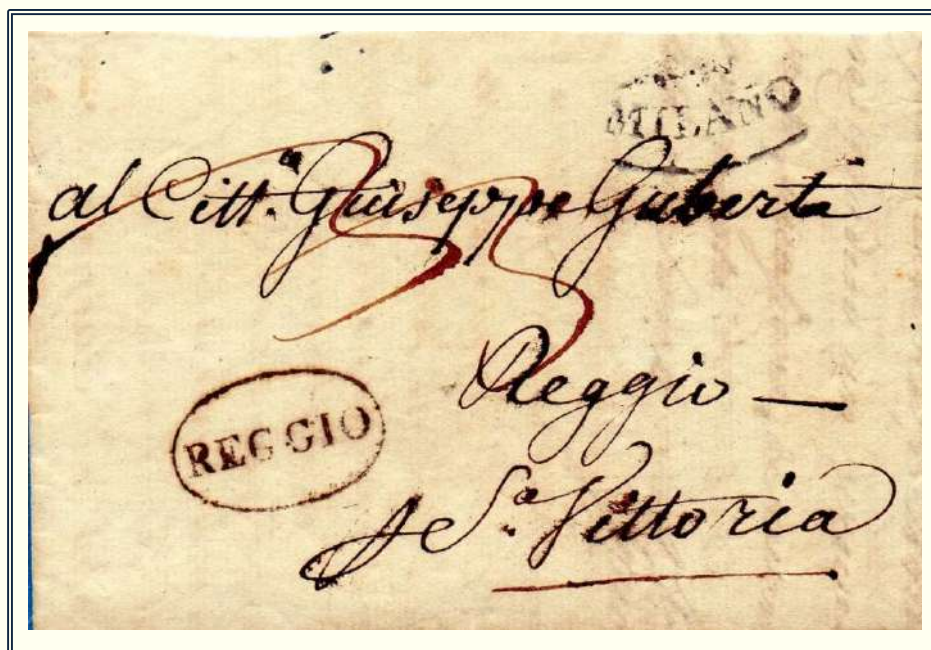 MILANO
al Citt.ª Giuseppe Guberti
Reggio —
REGGIO
A S.ª Vittoria